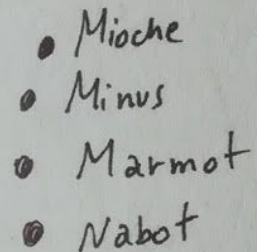 • Mioche
• Minus
• Marmot
• Nabot